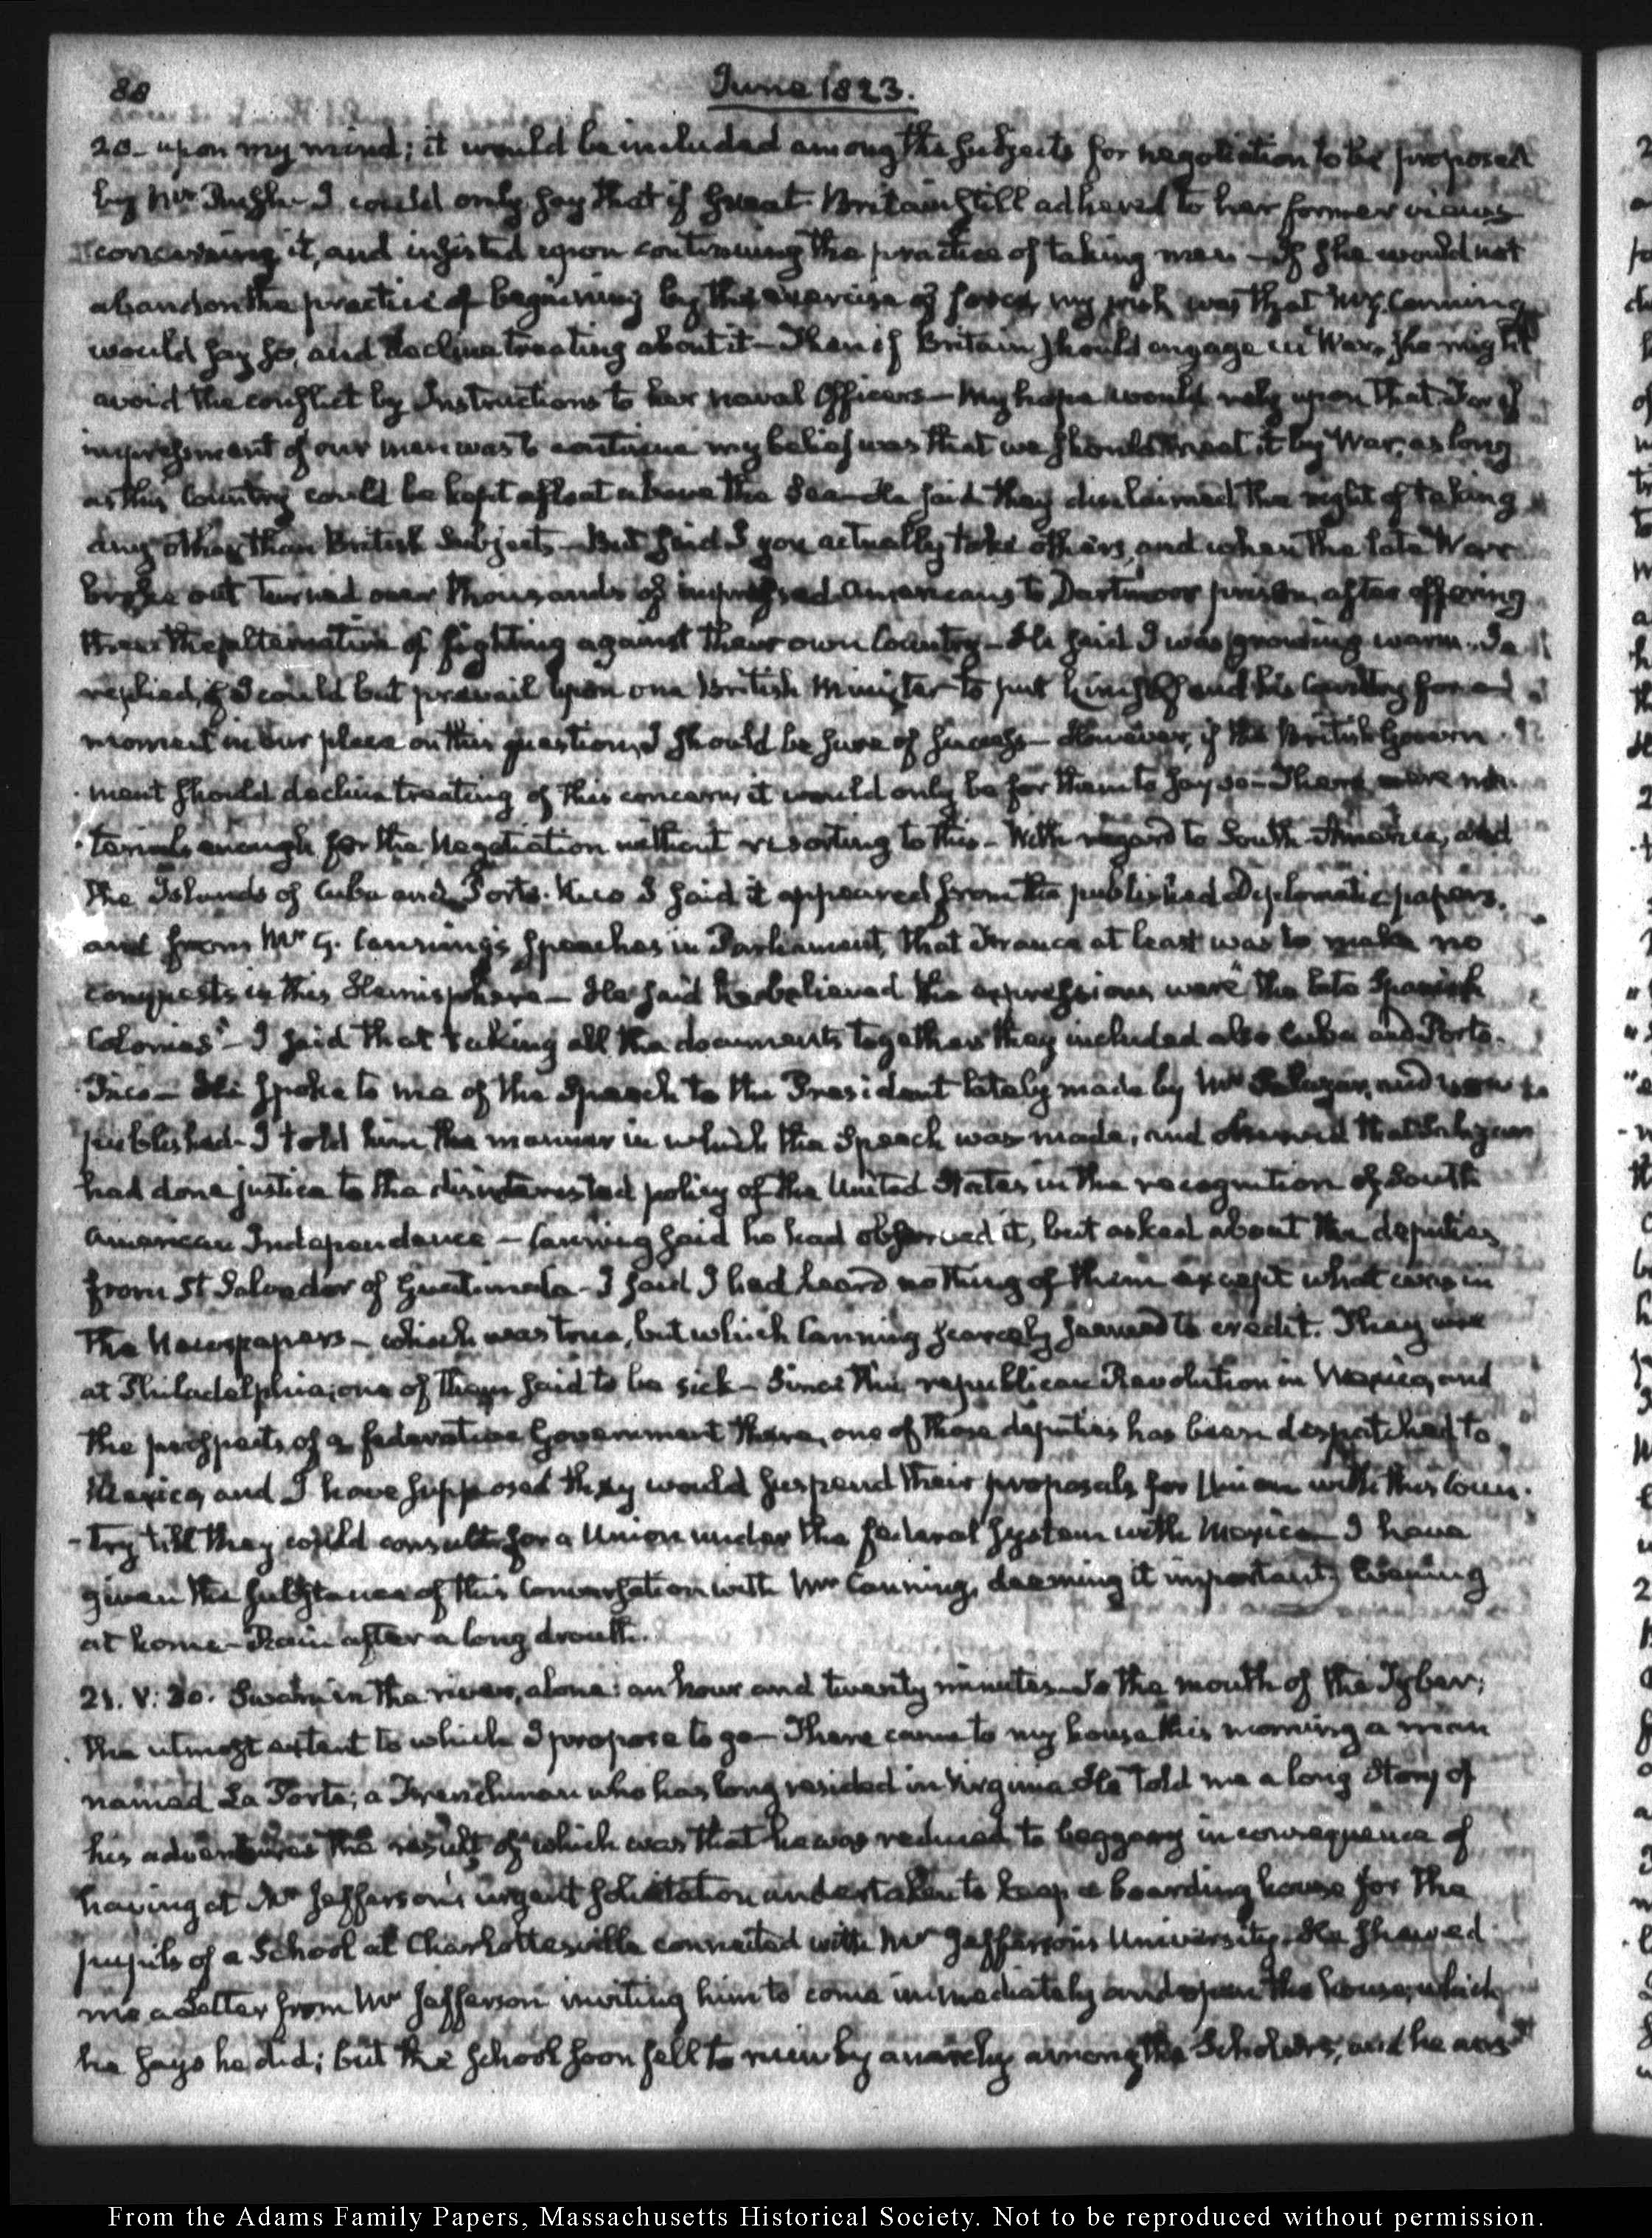 88
June 1823.
20- upon my mind; it would be included among the subjects for negotiation to be proposed
by Mr Rush- I could only say that if Great Britain still adhered to her former views
concerning it, and insisted upon continuing the practice of taking men - If she would not
abandon the practice of beginning by the exercise of force, my wish was that Mr Canning
would say so, and decline treating about it - Then if Britain should engage in War, she might
avoid the conflict by Instructions to her naval Officers - My hope would rely upon that. For if
impressment of our men was to continue my belief was that we should meet it by War, as long
as this Country could be kept afloat above the Sea - He said they disclaimed the right of taking
any other than British Subjects - But said I you actually take others, and when the late War
broke out turned over thousands of impressed Americans to Dartmoor prison, after offering
them the alternative of fighting against their own Country - He said I was growing warm. I
replied, if I could but prevail upon one British Minister to put himself and his Country for a
moment in our place on this question, I should be sure of success - However, if the British Govern
ment should decline treating of this concern, it would only be for them to say so - There were ma-
terials enough for the Negotiation without resorting to this - With regard to South-America, and
the Islands of Cuba and Porto-Rico I said it appeared from the published Diplomatic papers,
and from Mr G. Canning's speeches in Parliament, that France at least was to make no
conquests in this Hemisphere - He said he believed the expressions were "the late Spanish
Colonies" - I said that taking all the documents together they included also Cuba and Porto-
Rico - He spoke to me of the Speech to the President lately made by Mr Salazar, and now
published - I told him the manner in which the Speech was made, and observed that Salazar
had done justice to the disinterested policy of the United States in the recognition of South
American Independence - Canning said he had observed it, but asked about the deputies
from St Salvador of Guatimala - I said I had heard nothing of them except what was in
the Newspapers - which was true, but which Canning scarcely seemed to credit. They were
at Philadelphia; one of them said to be sick - Since the republican Revolution in Mexico, and
the prospects of a federative Government there, one of those deputies has been despatched to
Mexico, and I have supposed they would suspend their proposals for Union with this Coun-
-try till they could consult for a Union under the federal system with Mexico - I have
given the substance of this Conversation with Mr Canning, deeming it important) Evening
at home - Rain after a long drouth.
21. V: 30. Swam in the river, alone: an hour and twenty minutes - To the mouth of the Tyber;
the utmost extent to which I propose to go - There came to my house this morning a man
named La Porte; a Frenchman who has long resided in Virginia. He told me a long Story of
his adventures the result of which was that he was reduced to beggary in consequence of
having at Mr Jefferson's urgent solicitation undertaken to keep a boarding house for the
pupils of a School at Charlottesville connected with Mr Jefferson's University. He shewed
me a Letter from Mr Jefferson inviting him to come immediately and open the house; which
he says he did; but the school soon fell to ruin by anarchy among the Scholars, and he
From the Adams Family Papers, Massachusetts Historical Society. Not to be reproduced without permission.